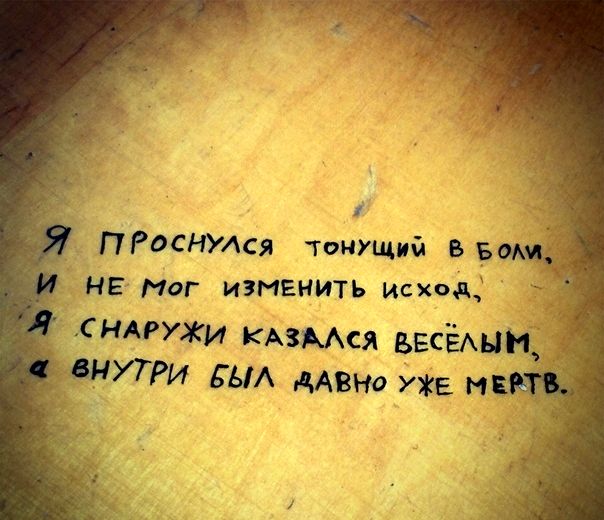 Я ПРОСНУЛСЯ ТОНУЩИЙ В БОЛИ,
И НЕ МОГ ИЗМЕНИТЬ ИСХОД,
Я СНАРУЖИ КАЗАЛСЯ ВЕСЁЛЫМ,
а ВНУТРИ БЫЛ ДАВНО УЖЕ МЕРТВ.